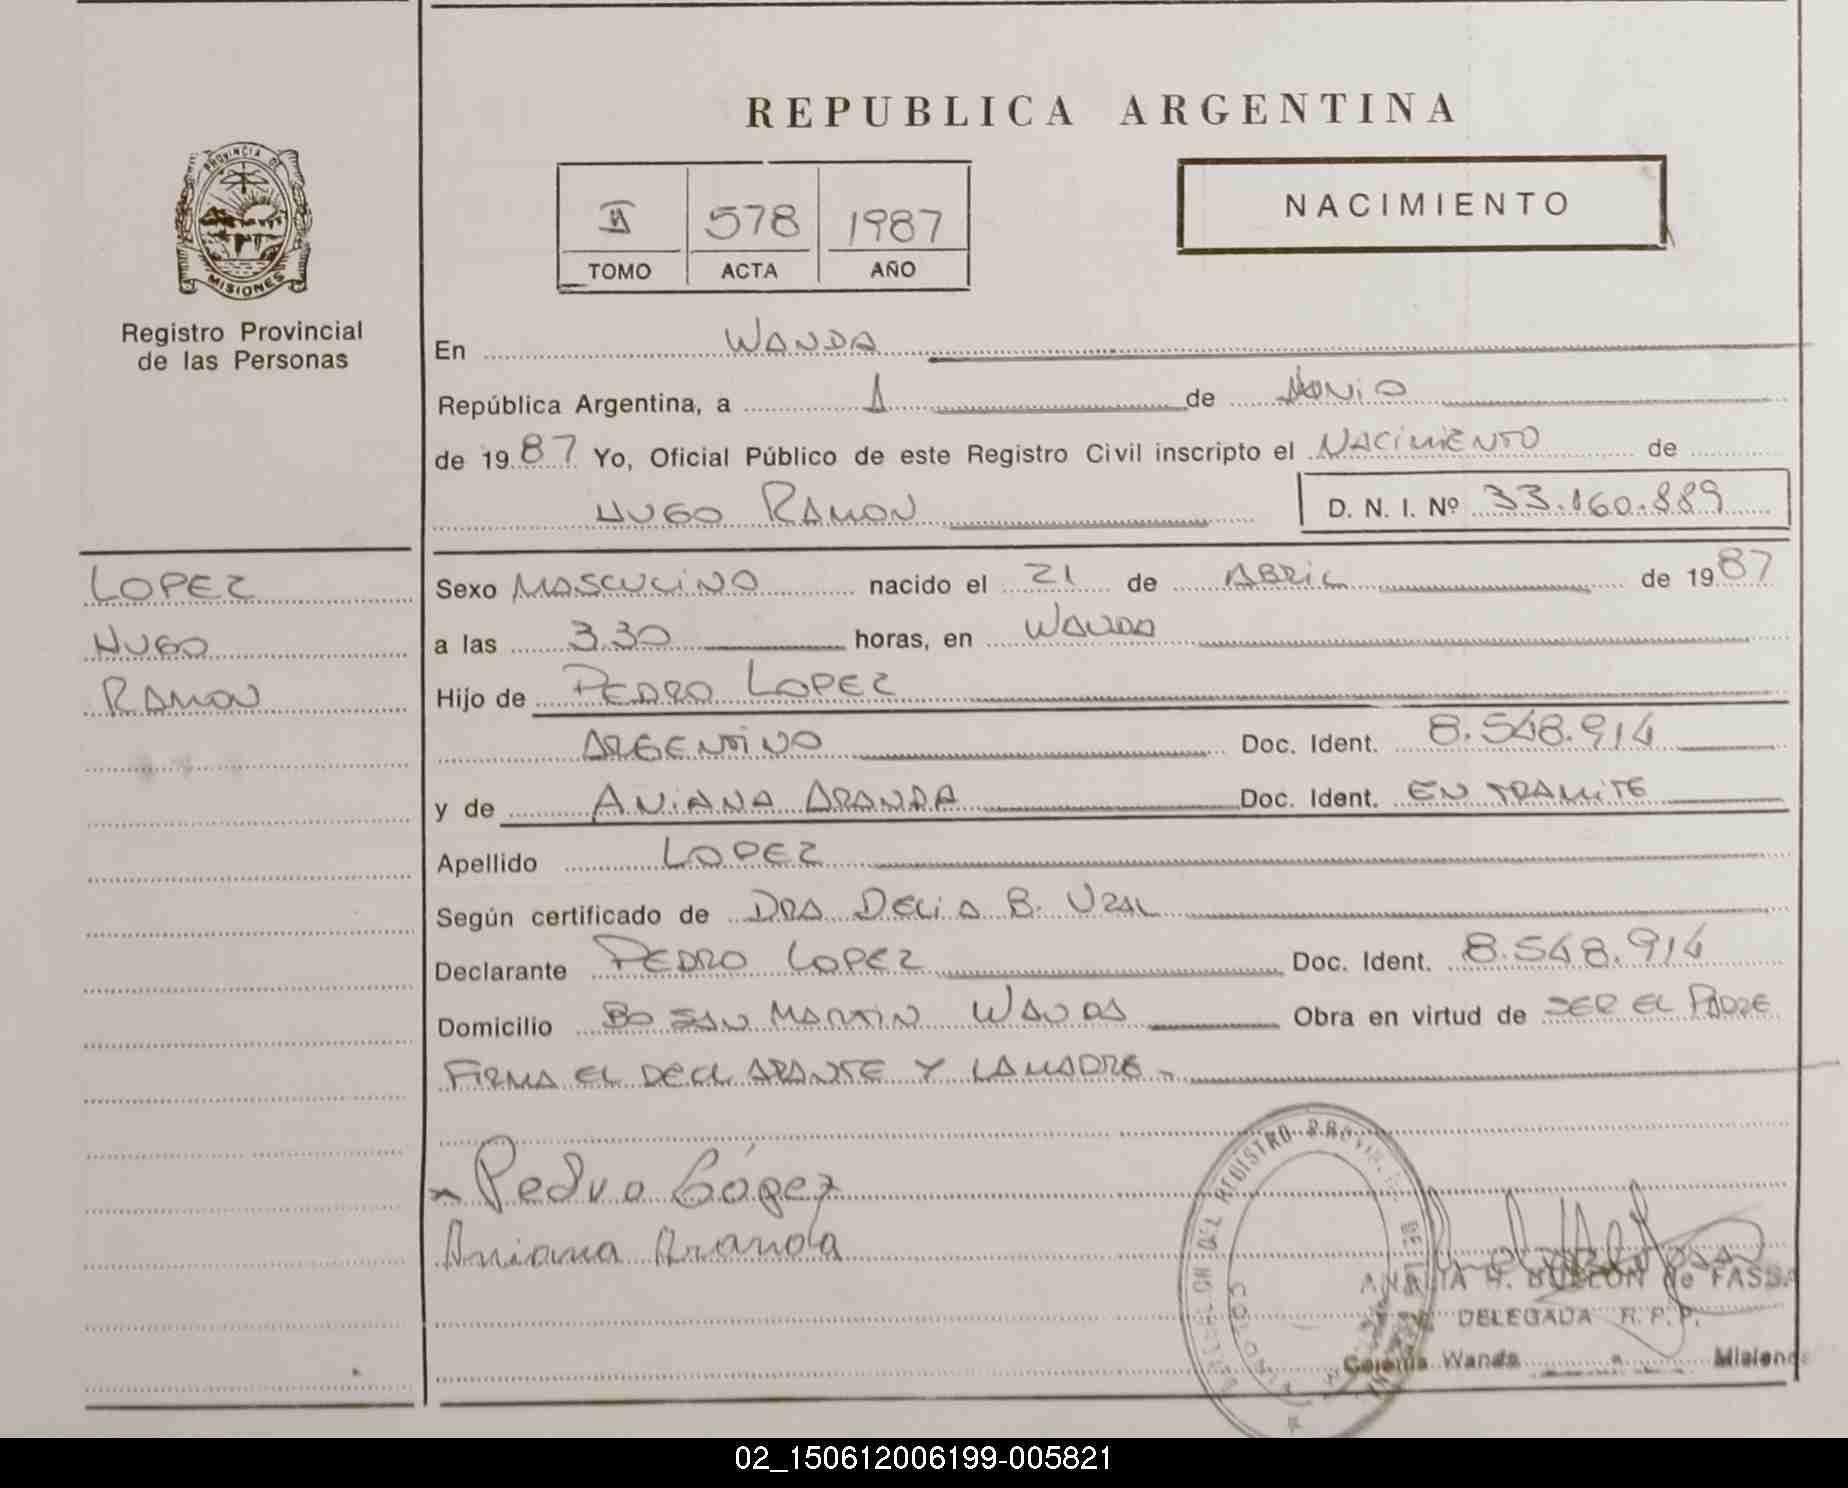 REPUBLICA ARGENTINA
PROVINCIA DE
MISIONES
Registro Provincial
de las Personas
II 578 1987
TOMO ACTA AÑO
NACIMIENTO
En WANDA
República Argentina, a 1 de JUNIO
de 1987 Yo, Oficial Público de este Registro Civil inscripto el NACIMIENTO de
HUGO RAMON D. N. I. Nº 33.160.889
LOPEZ
HUGO
RAMON
Sexo MASCULINO nacido el 21 de ABRIL de 1987
a las 3.30 horas, en WANDA
Hijo de PEDRO LOPEZ
ARGENTINO Doc. Ident. 8.548.914
y de ANIANA ARANDA Doc. Ident. EN TRAMITE
Apellido LOPEZ
Según certificado de DRA DELIA B. UZAL
Declarante PEDRO LOPEZ Doc. Ident. 8.548.914
Domicilio BO SAN MARTIN WANDA Obra en virtud de SER EL PADRE
FIRMA EL DECLARANTE Y LA MADRE -
Pedro López
Aniana Aranda
DEL REGISTRO
ANALIA H. de FASSA
DELEGADA R. P. P.
Colonia Wanda Misiones
02_150612006199-005821